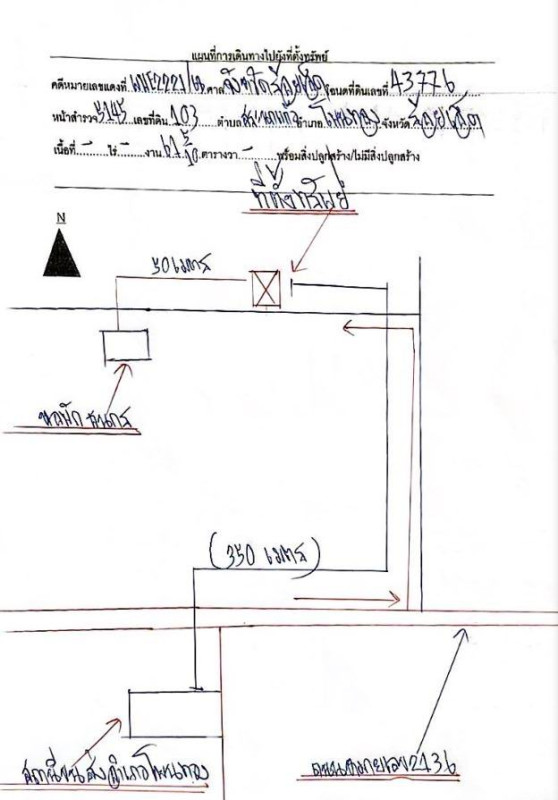 แผนที่การเดินทางไปยังที่ตั้งทรัพย์
คดีหมายเลขแดงที่ ผบE2221/ ศาล จังหวัดร้อยเอ็ด โฉนดที่ดินเลขที่ 43776
หน้าสำรวจ 5145 เลขที่ดิน 103 ตำบล สระนกแก้ว อำเภอ โพนทอง จังหวัด ร้อยเอ็ด
เนื้อที่ - ไร่ - งาน 67 5/10 ตารางวา - พร้อมสิ่งปลูกสร้าง/ไม่มีสิ่งปลูกสร้าง
ที่ตั้งทรัพย์
N
50 เมตร
(350 เมตร)
สถานีขนส่งอำเภอโพนทอง
ถนนหมายเลข 2136